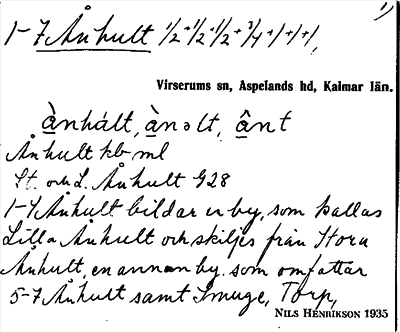 1)
1-7 Ånhult 1/2+1/2+1/2+3/4+1+1+1,
Virserums sn, Aspelands hd, Kalmar län.
ànhált, ànəlt, ânt
Ånhult kb ml
St. och L. Ånhult G28
1-4 Ånhult bildar en by, som kallas
Lilla Ånhult och skiljes från Stora
Ånhult, en annan by, som omfattar
5-7 Ånhult samt Smuge, Torp,
NILS HENRIKSON 1935